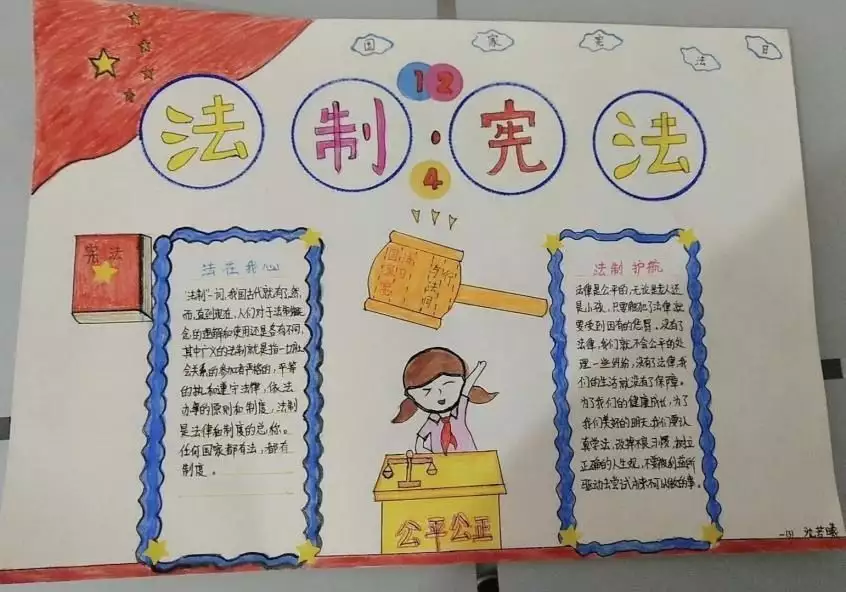 国 家 宪 法 日
12
4
法 制 · 宪 法
宪法
法在我心
"法制"一词,我国古代就有了,然
而,直到现在,人们对于法制概
念的理解和使用还是各有不同,
其中广义的法制就是指一切社
会关系的参加者严格的,平等
的执和遵守法律,依法
办事的原则和制度,法制
是法律和制度的总称。
任何国家都有法,都有
制度。
公平公正
法制护航
法律是公平的,无论是大人还
是小孩,只要触犯了法律就
要受到因有的惩罚。没有了
法律,我们就不会公平的处
理一些纠纷,没有了法律,我
们的生活就没有了保障。
为了我们的健康成长,为了
我们美好的明天,我们要认
真学法,改掉不良习惯,树立
正确的人生观,不要被利益所
驱动去尝试 可以做的事。